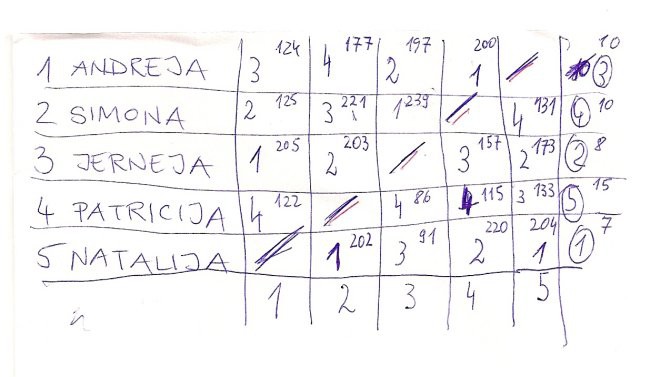 1 ANDREJA 3 124 4 177 2 197 1 200 3 10
2 SIMONA 2 125 3 221 1 239 4 131 4 10
3 JERNEJA 1 205 2 203 3 157 2 173 2 8
4 PATRICIJA 4 122 4 86 4 115 3 133 5 15
5 NATALIJA 1 202 3 91 2 220 1 204 1 7
1 2 3 4 5